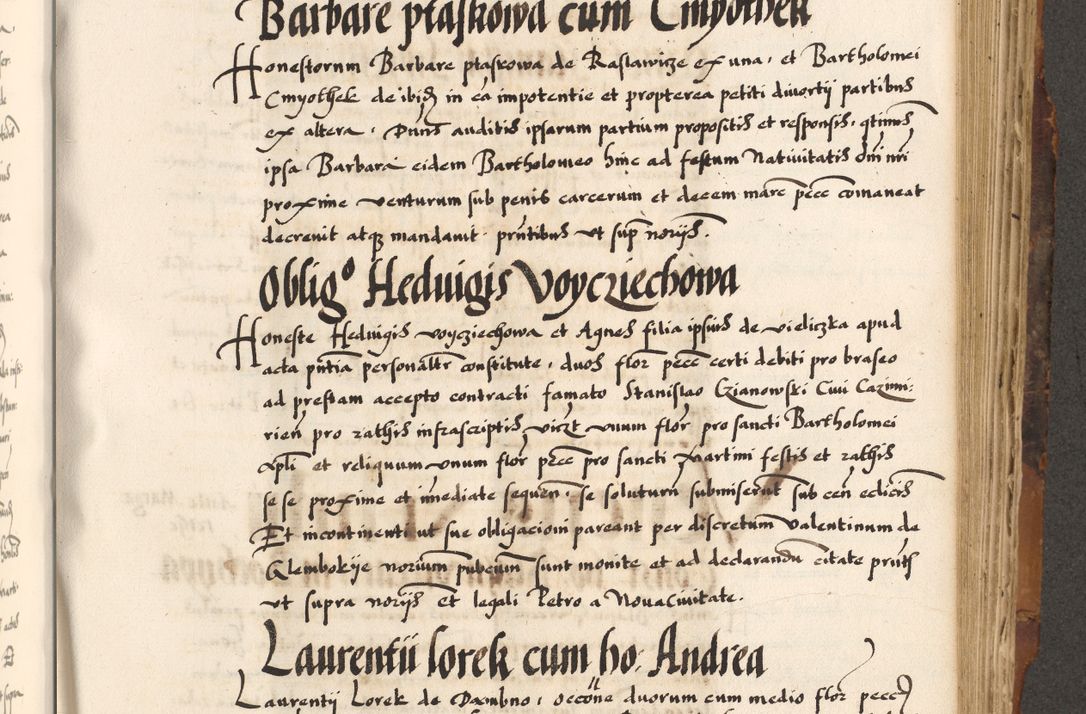 Barbare ptaskowa cum Cmyothek
Honestorum Barbare ptaskowa de Raslawicze ex una, et Bartholomei
Cmyothek de ibid in ca impotentie et propterea petiti divortij partibus
ex altera, Dnus auditis ipsarum partium propositis et responsis,
ipsa Barbara eidem Bartholomeo hinc ad festum Nativitatis dni nri
proxime venturum sub penis carcerum et decem marc pecc comaneat
decrevit atq mandavit. prntibus ut sup norijs.
Oblig° Hedvigis Voycziechowa
Honeste Hedvigis voycziechowa et Agnes filia ipsius de vieliczka apud
acta pntia personalitr constitute, duos flor pecc certi debiti pro braseo
ad prestam accepto contracti famato Stanislao Czianowski Civi Cazimi:
rien pro rathis infrascriptis, vizt unum flor pro sancti Bartholomei
apli et reliquum unum flor pecc pro sancti Martini festis et rathis
se se proxime et imediate sequen, se soluturu submiserunt sub cen edictis
Et incontinenti ut sue obligacioni pareant per discretum Valentinum de
Glembokije norium pubcum sunt monite et ad declarandu citate prntj
ut supra norijs et legali Petro a Novacivitate.
Laurentii lorek cum ho. Andrea
Laurentij Lorek de Dambno, duorum cum medio flor pecc